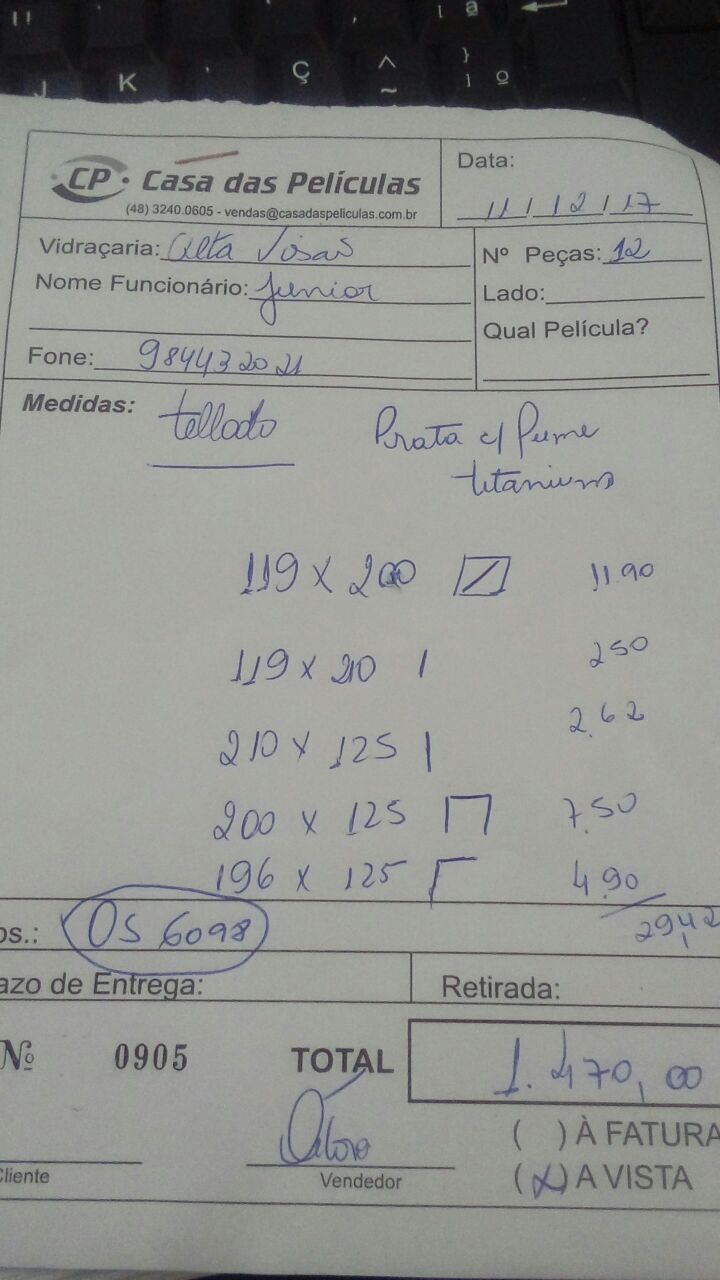 CP Casa das Películas
(48) 3240.0605 - vendas@casadaspeliculas.com.br
Data: 11/12/17
Vidraçaria: Alta Visas
Nº Peças: 12
Nome Funcionário: Junior
Lado:
Qual Película?
Fone: 984432021
Medidas: tellado
Prata c/ Fume
titanium
119 x 200 11.90
119 x 210 250
210 x 125 2.62
200 x 125 7.50
196 x 125 4.90
29,42
os.: OS 6098
azo de Entrega:
Retirada:
Nº 0905 TOTAL 1.470,00
( ) À FATURA
Cliente
Vendedor
(X) A VISTA
J K Ç ^ ~ } ] º ª